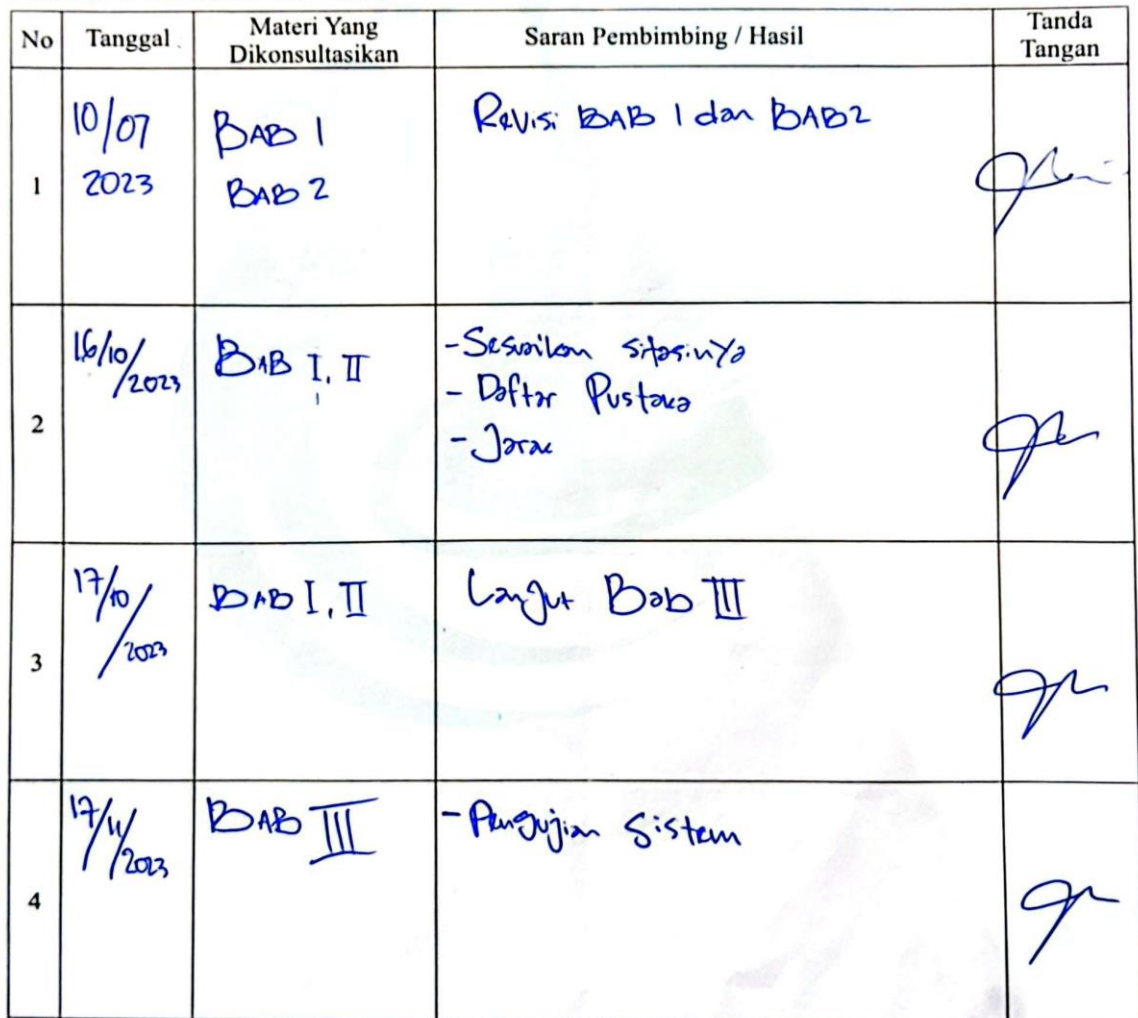 No Tanggal Materi Yang Dikonsultasikan Saran Pembimbing / Hasil Tanda Tangan
1
10/07
2023
BAB 1
BAB 2
Revisi BAB 1 dan BAB2
2
16/10/2023
BAB I, II
- Sesuaikan sitasinya
- Daftar Pustaka
- Jarak
3
17/10/2023
BAB I, II
Lanjut Bab III
4
17/11/2023
BAB III
- Pengujian Sistem